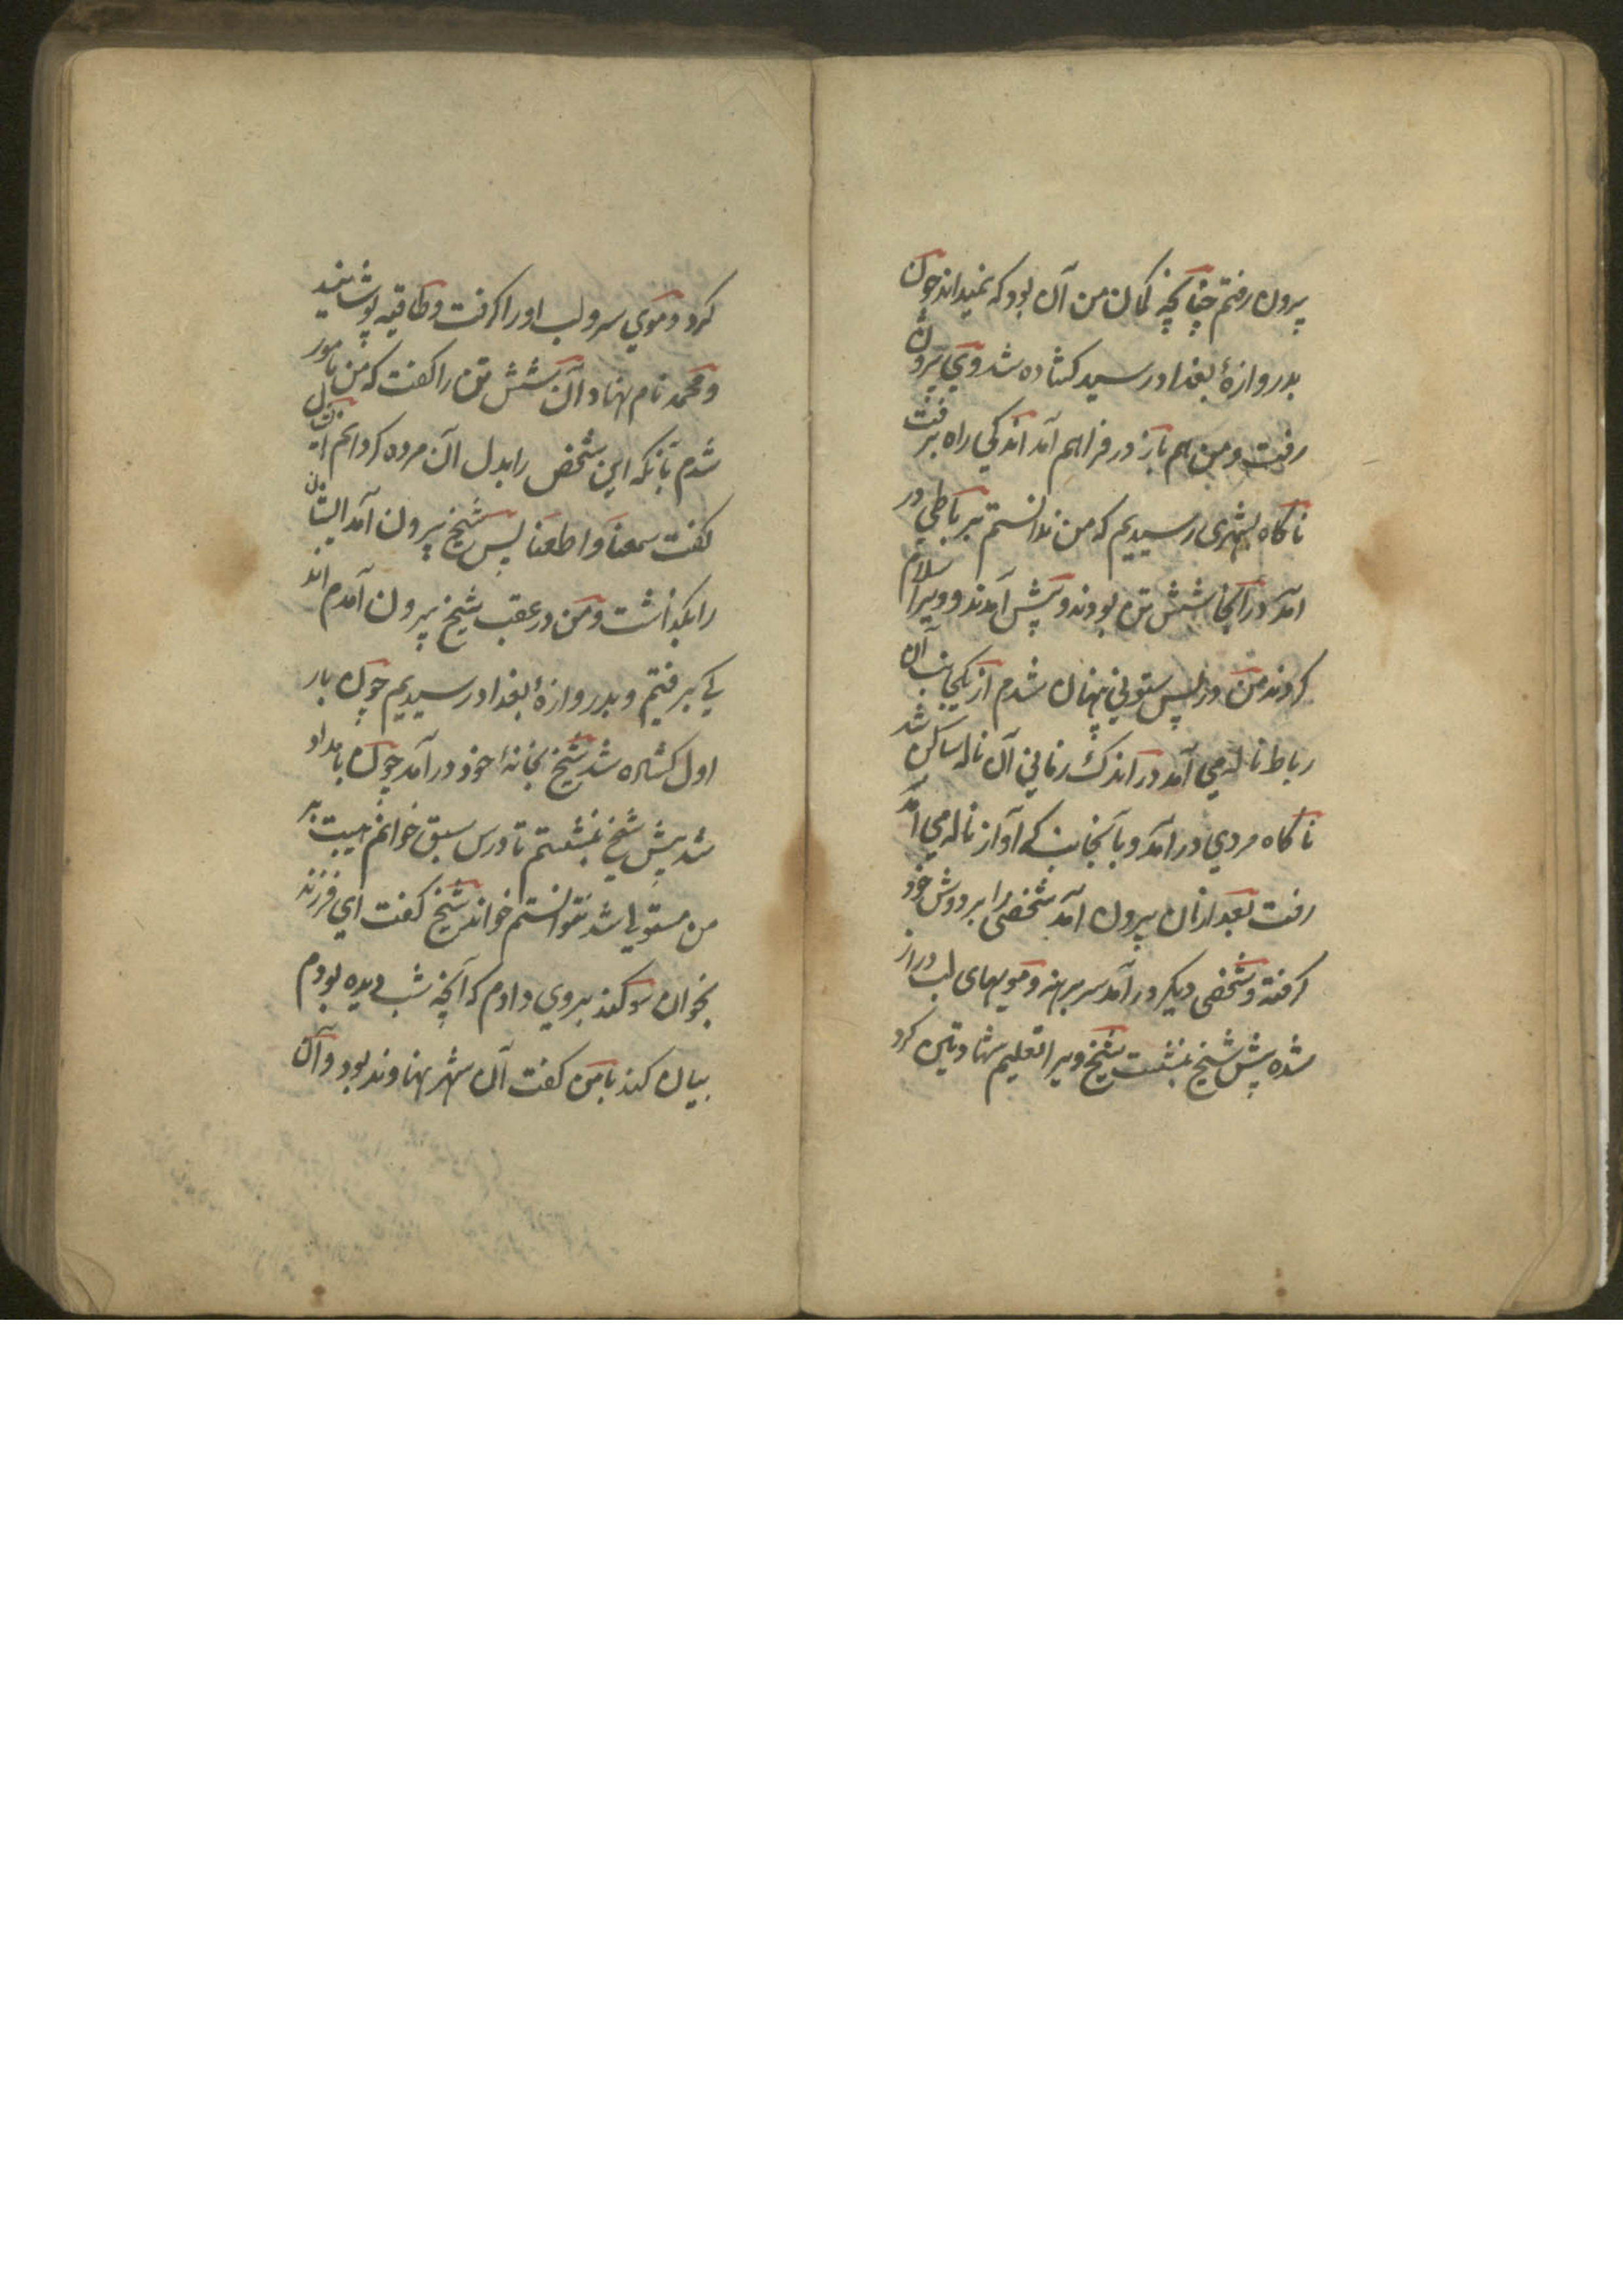 بیرون رفتم چنانچه گمان من آن بود که نمیداند چون
بدروازهٔ بغداد رسید کشاده شد وی بیرون
رفت و من هم باز در فراهم آمد اندکی راه برفت
ناگاه بشهری رسیدیم که من ندانستم برباطی در
آمد در آنجا شش تن بودند و پیش آمدند و ویرا سلام
کردند من در پس ستونی پنهان شدم از یکجانب آن
رباط ناله می آمد در اندک زمانی آن ناله ساکن شد
ناگاه مردی در آمد و بآنجانب که آواز ناله می آمد
رفت بعد ازان بیرون آمد شخصی را بر دوش خود
گرفته و شخصی دیگر در آمد سر برهنه و مویهای لب دراز
شده پیش شیخ بنشست شیخ ویرا تعلیم شهادتین کرد
کرد و موی سر و لب او را گرفت و طاقیه پوشانید
و محمد نام نهاد و آن شش تن را گفت که من مامور
شدم بآنکه این شخص را بدل آن مرده کردانم
گفت سمعنا و اطعنا پس شیخ بیرون آمد ایشان
را بگذاشت و من در عقب شیخ بیرون آمدم اند
کی برفتیم و بدروازهٔ بغداد رسیدیم چون بار
اول کشاده شد شیخ بخانهٔ خود در آمد چون بامداد
شد پیش شیخ بنشستم تا درس سبق خوانم هیبت بر
من مستولی شد نتوانستم خواند شیخ گفت ای فرزند
بخوان سوگند بر وی دادم که آنچه شب دیده بودم
بیان کند با من گفت آن شهر نهاوند بود و آن